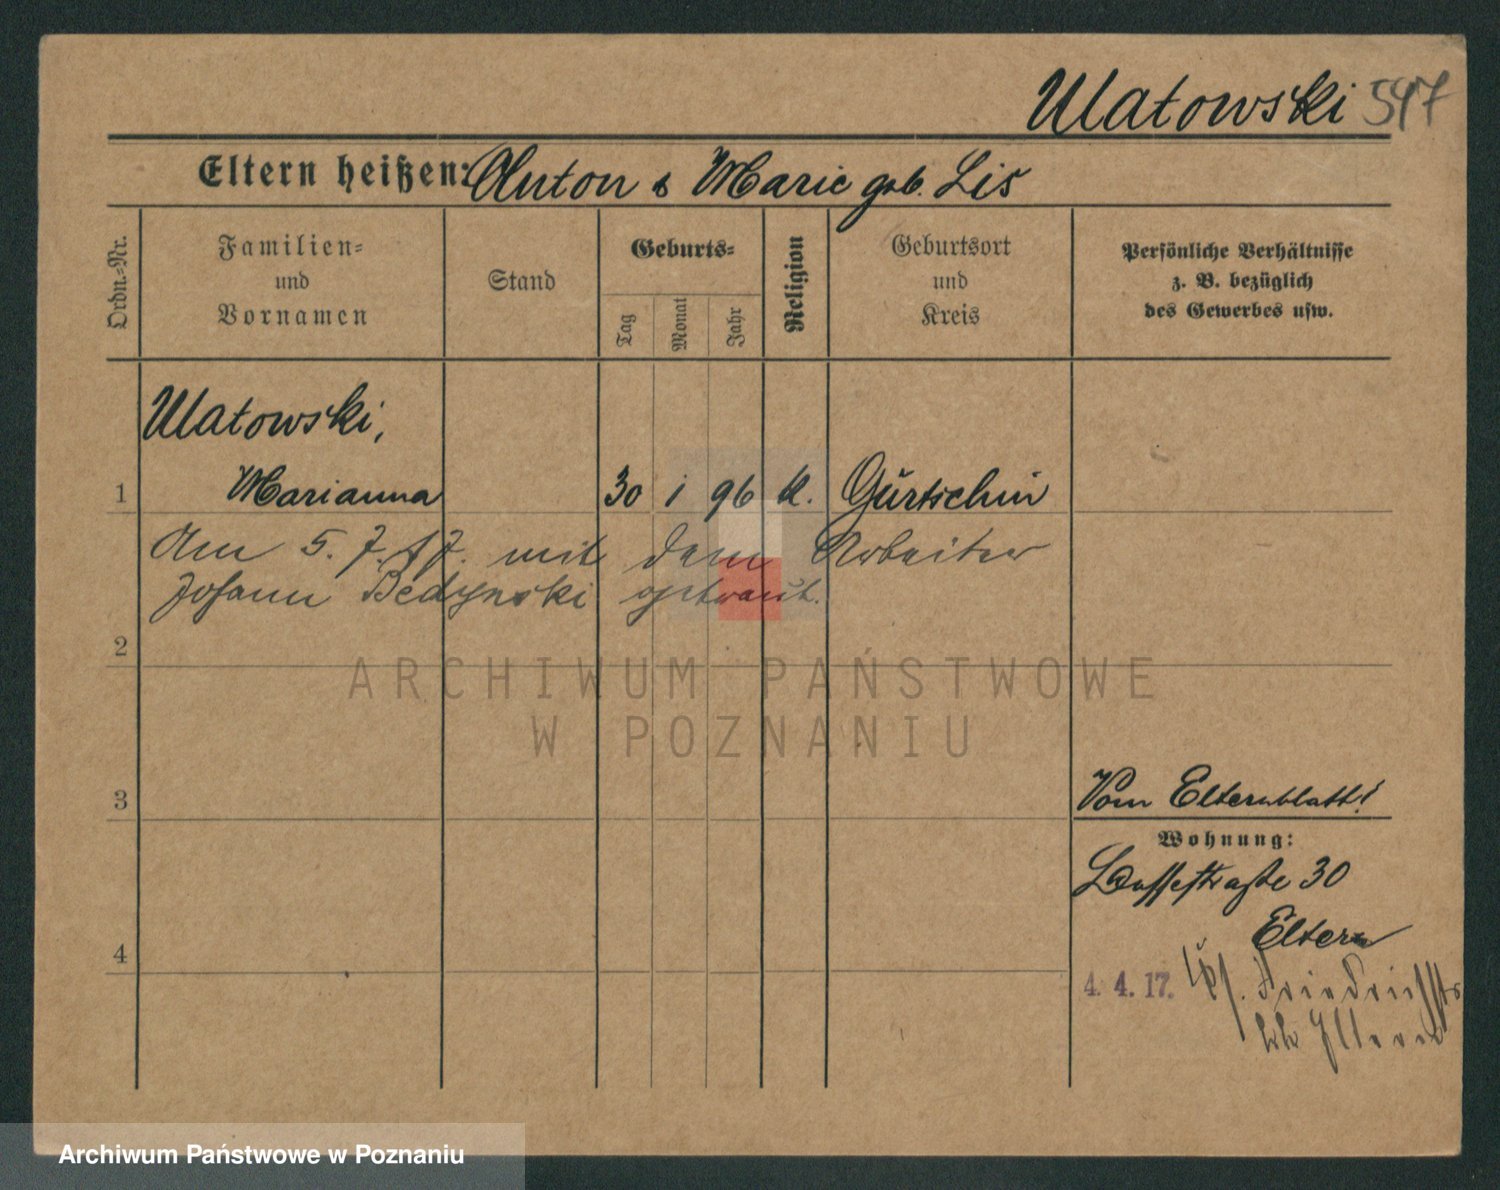 Ulatowski 547
Eltern heißen: Anton & Marie geb. Lis
Ordn.-Nr.
Familien-
und
Vornamen
Stand
Geburts-
Tag
Monat
Jahr
Religion
Geburtsort
und
Kreis
Persönliche Verhältnisse
z. B. bezüglich
des Gewerbes usw.
Ulatowski,
1 Marianna 30 1 96 k. Gurtschin
Am 5. 7. 17. mit dem Arbeiter
Johann Bedynski getraut.
2
ARCHIWUM PAŃSTWOWE
W POZNANIU
Vom Elternblatt!
3
Wohnung:
30
Eltern
4
4. 4. 17.
Archiwum Państwowe w Poznaniu